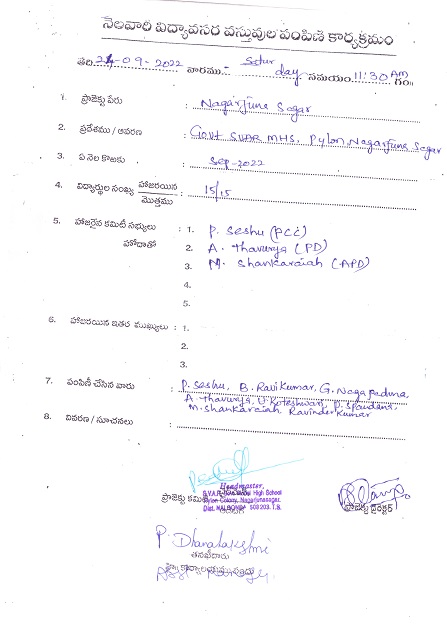 నెలవారి విద్యావసర వస్తువుల పంపిణి కార్యక్రమం
తేది: 24-09-2022 వారము:- Saturday సమయం: 11:30 AM గం॥
1. ప్రాజెక్టు పేరు : Nagarjuna Sagar
2. ప్రదేశము / ఆవరణ : Govt SVAR MHS, Pylon, Nagarjuna Sagar
3. ఏ నెల కొఱకు : Sep-2022
4. విద్యార్థుల సంఖ్య హాజరయిన / మొత్తము : 15/15
5. హాజరైన కమిటీ సభ్యులు : 1. P. Seshu (PCC)
హోదాతో 2. A. Thavurya (PD)
3. M. Shankaraiah (APD)
4.
5.
6. హాజరయిన ఇతర ముఖ్యులు : 1.
2.
3.
7. పంపిణీ చేసిన వారు : P. Seshu, B. Ravikumar, G. Naga Paduna,
A. Thavurya, U. Koteshwari, P. Spandana,
M. Shankaraiah Ravinder Kumar
8. వివరణ / సూచనలు :
Headmaster,
S.V.A.R. High School
Pylon Colony, Nagarjunasagar,
Dist. NALGONDA 508 203. T.S.
ప్రాజెక్టు కమిటీ
ప్రాజెక్టు డైరెక్టర్
P. Dhanalakshmi
తనిఖీదారు